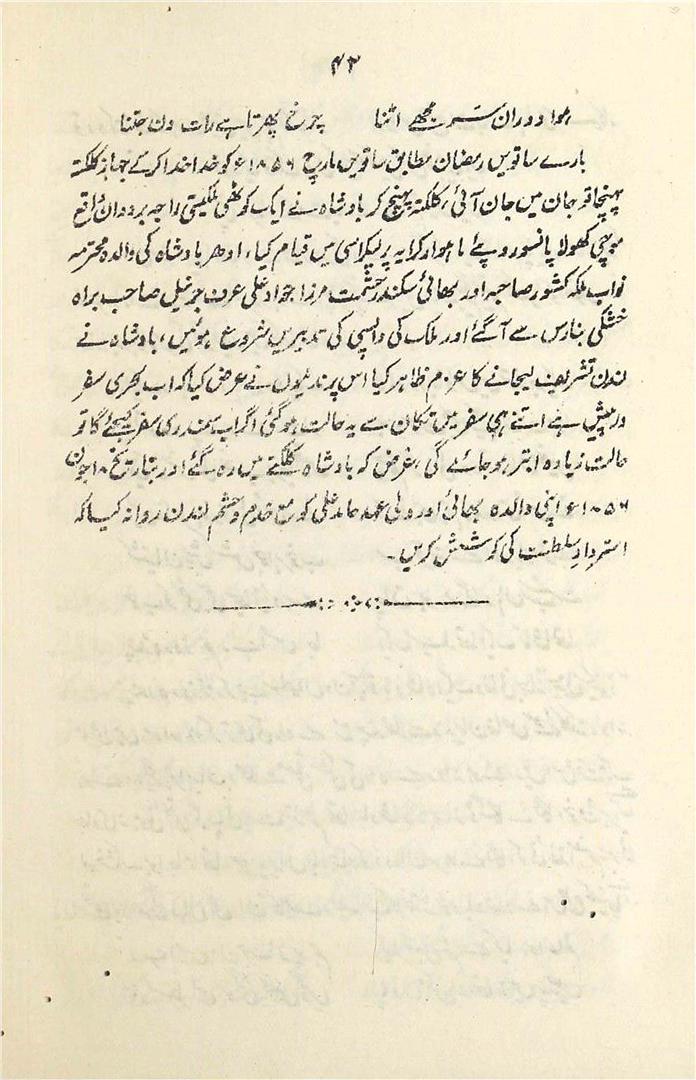 ۴۲
ہوا دوران سر مجھے اتنا چرخ پھرتا ہے رات دن جتنا
بارے ساتویں رمضان مطابق ساتویں مارچ ۱۸۵۶ء کو خدا خدا کر کے جہاز کلکتہ
پہنچا تو جان میں جان آئی، کلکتہ پہنچ کر بادشاہ نے ایک کوٹھی ملکیتی راجہ بردوان واقع
موچی کھولا پانسو روپئے ماہوار کرایہ پر لیکر اسی میں قیام کیا، ادھر بادشاہ کی والدہ محترمہ
نواب ملکہ کشور صاحبہ اور بھائی سکندر حشمت مرزا جواد علی عرف جرنیل صاحب براہ
خشکی بنارس سے آ گئے اور ملک کی واپسی کی تدبیریں شروع ہوئیں، بادشاہ نے
لندن تشریف لیجانے کا عزم ظاہر کیا اس پر ندیموں نے عرض کیا کہ اب بحری سفر
درپیش ہے اتنے ہی سفر میں تکان سے یہ حالت ہو گئی اگر اب سمندری سفر کیجئے گا تو
حالت زیادہ ابتر ہو جائے گی، غرض کہ بادشاہ کلکتے میں رہ گئے اور بتاریخ ۱۸ جون
۱۸۵۶ء اپنی والدہ بھائی اور ولی عہد حامد علی کو مع خدم و حشم لندن روانہ کیا کہ
استردادِ سلطنت کی کوشش کریں۔